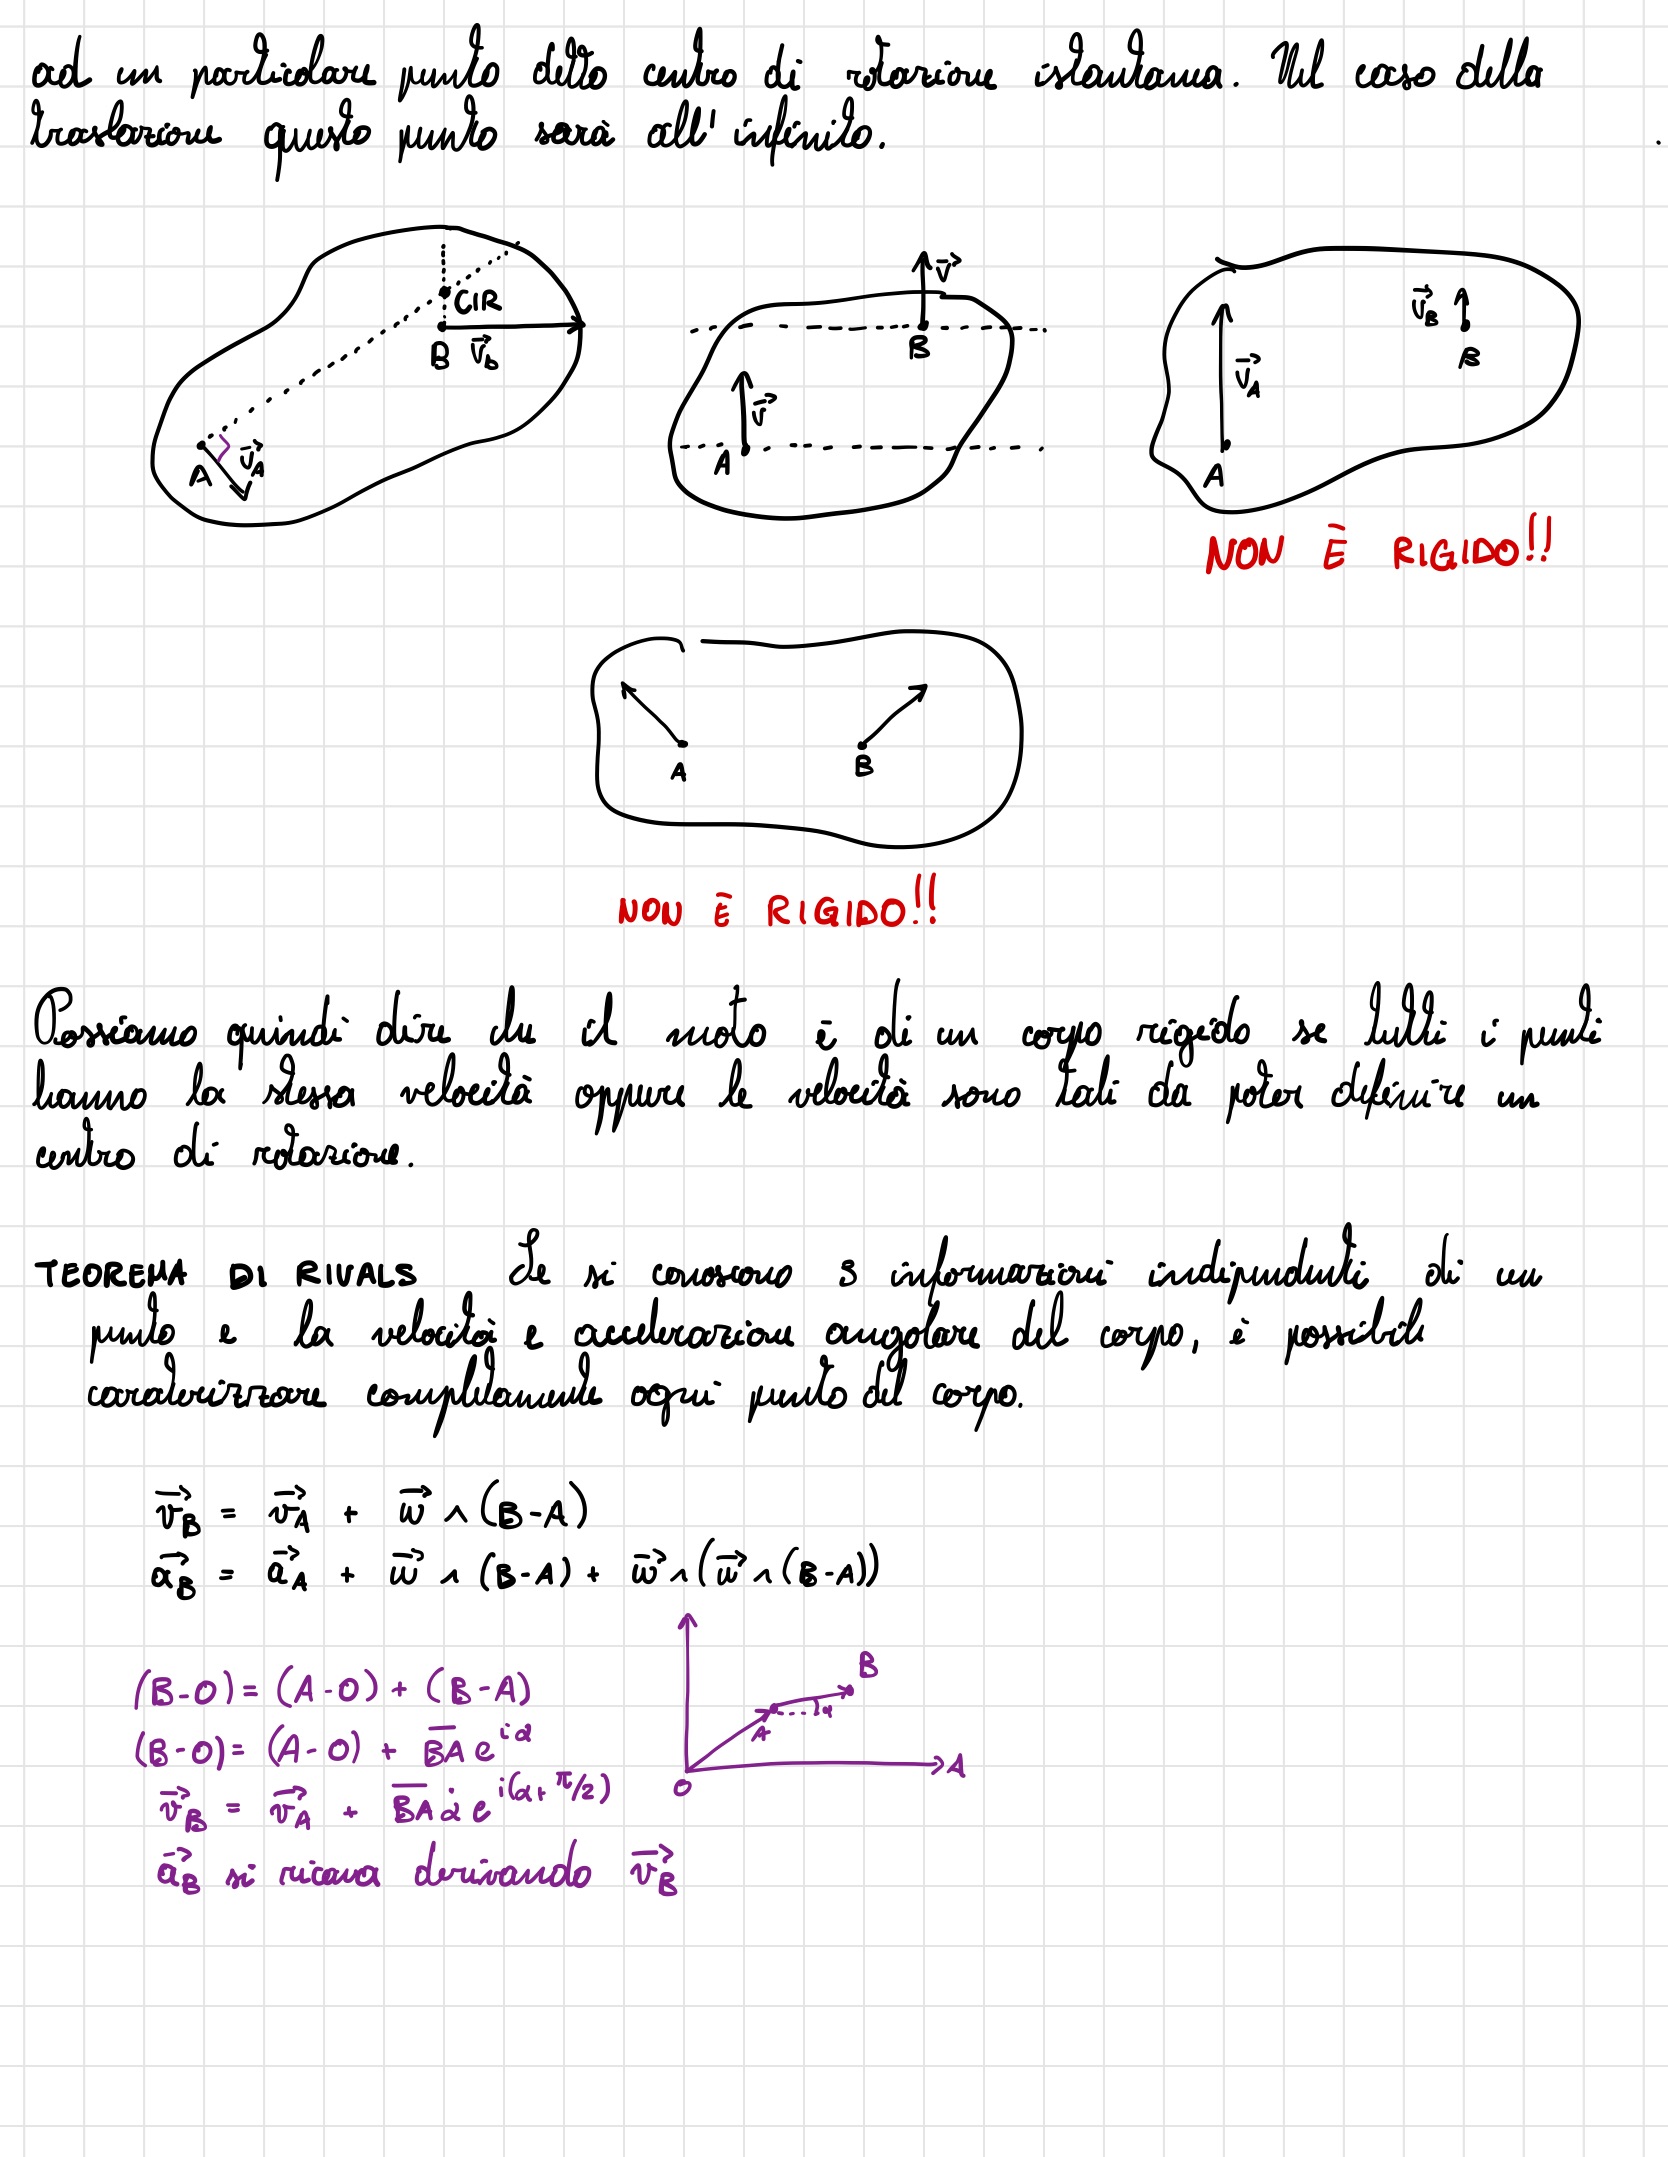 ad un particolare punto detto centro di rotazione istantanea. Nel caso della
traslazione questo punto sarà all'infinito.
CIR
B v⃗b
A v⃗A
v⃗
B
v⃗
A
v⃗B
B
v⃗A
A
NON È RIGIDO!!
A B
NON È RIGIDO!!
Possiamo quindi dire che il moto è di un corpo rigido se tutti i punti
hanno la stessa velocità oppure le velocità sono tali da poter definire un
centro di rotazione.
TEOREMA DI RIVALS Se si conoscono 3 informazioni indipendenti di un
punto e la velocità e accelerazione angolare del corpo, è possibile
caraterizzare completamente ogni punto del corpo.
v⃗B = v⃗A + w⃗ ∧ (B-A)
a⃗B = a⃗A + w⃗ ∧ (B-A) + w⃗ ∧ (w⃗ ∧ (B-A))
(B-O) = (A-O) + (B-A)
(B-O) = (A-O) + B̅A̅ e^{iα}
v⃗B = v⃗A + B̅A̅ α̇ e^{i(α+π/2)}
a⃗B si ricava derivando v⃗B
B
A α
A
O